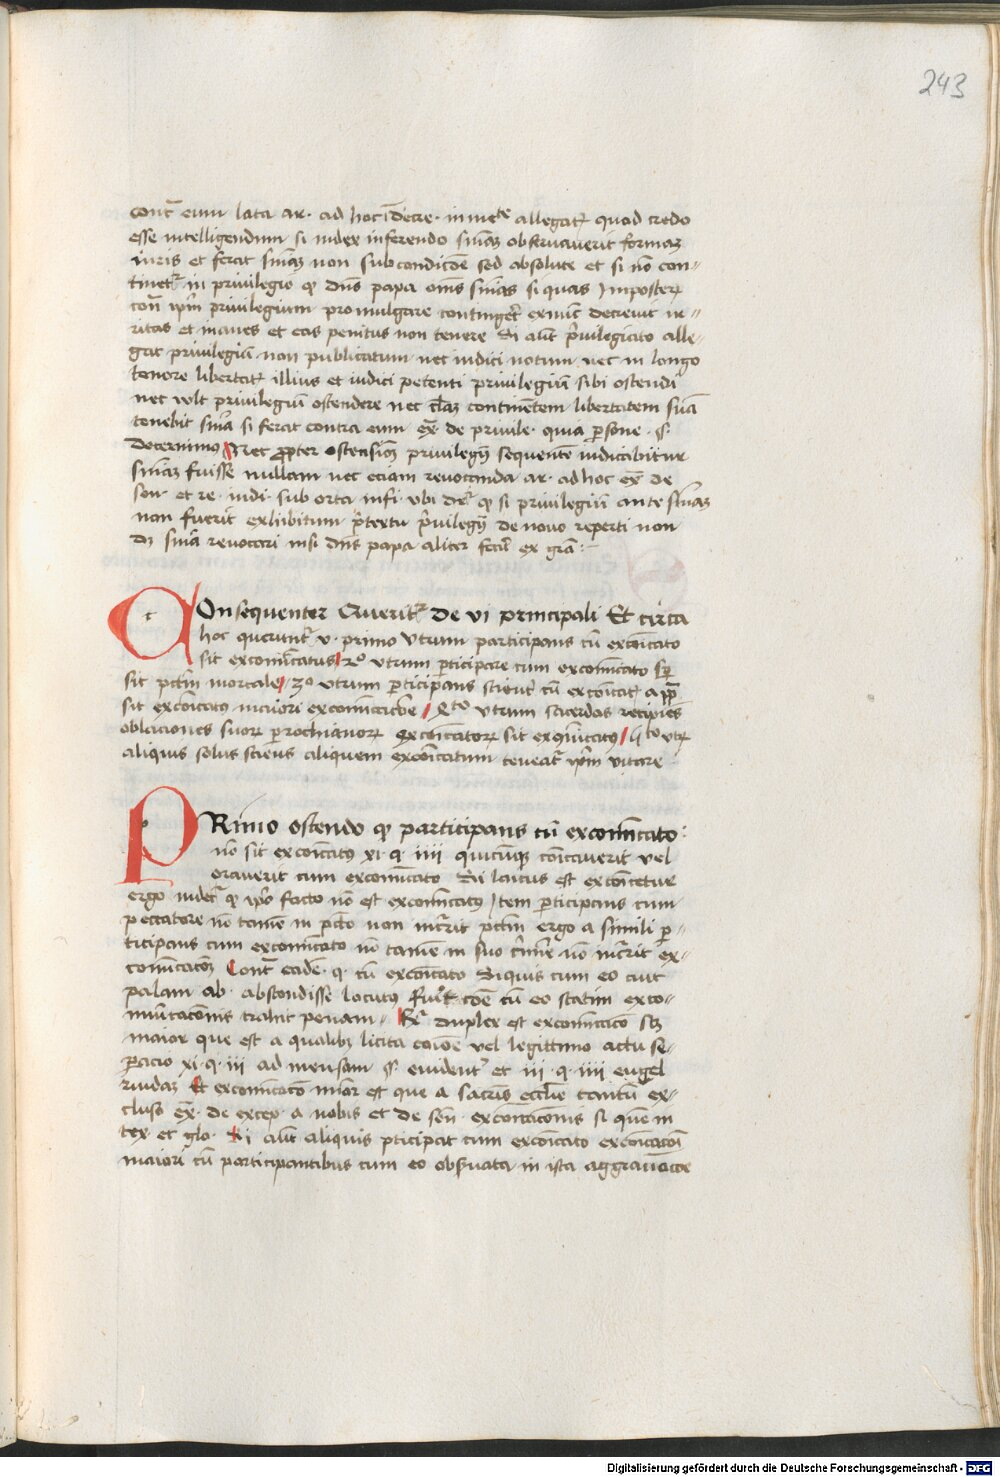 243
contᷓ eum lata ar. ad hoc ī decre. inuete allegatꝛ quod credo
esse intelligendum si iudex inferendo sniāꝫ obseruauerit formaꝫ
iuris et ferat sniāꝫ non sub condicōe sed absolute et si nō con-
tinetꝛ in priuilegio qꝫ dn̄s papa om̄s sniās si quas inposterꝝ
contᷓ ipm̄ priuilegium promulgare contingeret̄ exnūc decreuit ir-
ritas et inanes et eas penitus non tenere Si aūt p̄uilegiato alle-
gat priuilegiū non publicatum nec iudici notum nec in longo
tenore libertatꝭ illius et iudici petenti priuilegiū sibi ostendi
nec vult priuilegiū ostendere nec cl̄aꝫ continentem libertatem suā
tenebit snīa si ferat contra eum ex̄ de priuile. quia ꝑsone. §.
decernimus Nec ꝓpter ostensiōeꝫ priuilegij sequentē iudicabitur
sniāꝫ fuisse nullam nec eciam reuocanda ar. ad hoc ex̄ de
sen. et re. iudi. sub orta infi. vbi drꝛ qꝫ si priuilegiū ante sniāꝫ
non fuerit exhibitum p̄textu p̄uilegij de nouo reperti non
dꝫ snīa reuocari nisi dn̄s papa aliter fecit̄ ex grā :-
COnsequenter Queritꝛ de vi principali Et circa
hoc queruntꝛ v. primo Vtrum participans cū excōicato
sit excoīnicatus 2º vtrum ꝑticipare cum excoīnicato sꝑ
sit pctm̄ mortale 3º vtrum ꝑticipans scient̄ cū excōicatꝭ a pp̄
sit excōicatus maiori excoīnicacōe Qto vtrum sacerdos recipiēs
oblaciones suoꝝ ꝑrochianoꝝ excōicatoꝝ sit excōicatꝰ 5to vtꝝ
aliquis solus sciens aliquem excōicatum teneatꝛ ipm̄ vitare
PRimo ostendo qꝫ participans cū excoīnicato
nō sit excōicatꝰ xi. q. iiii quicūqꝫ cōicauerit vel
orauerit cum excoīnicato Si laicus est excōicetur
ergo videtꝛ qꝫ ipō facto nō est excoīnicatꝰ Item ꝑticipans cum
peccatore nō tamē in pctō non incurrit pctm̄ ergo a simili ꝑ-
ticipans cum excoīnicato nō tamē in suo crimīe nō incurrit ex-
coīnicacōeꝫ Contᷓ eadē. q. cū excōicato Siquis cum eo aut
palam aꝫ. abscondisse locutꝰ fu'it cōe cū eo statim exco-
īnicacōnis trahit penam. Rꝰ duplex est excoīnicaco scꝫ
maior que est a qualibꝫ licita cōione vel legittimo actu se-
ꝑacio xi. q. iii ad mensam §. euidentꝰ et iii. q. iiii engel
rudaꝫ Et excoīnicaco minor est que a sacris ecclīe tantū ex-
cluso ex̄. de excep. a nobis et de sen̄. excoīcacōnis si quem in
tex. et glo. Si aūt aliquis pticipat cum excōicato excōicacōe
maiori cū participantibus cum eo obseruata in ista aggrauacōe
Digitalisierung gefördert durch die Deutsche Forschungsgemeinschaft - DFG